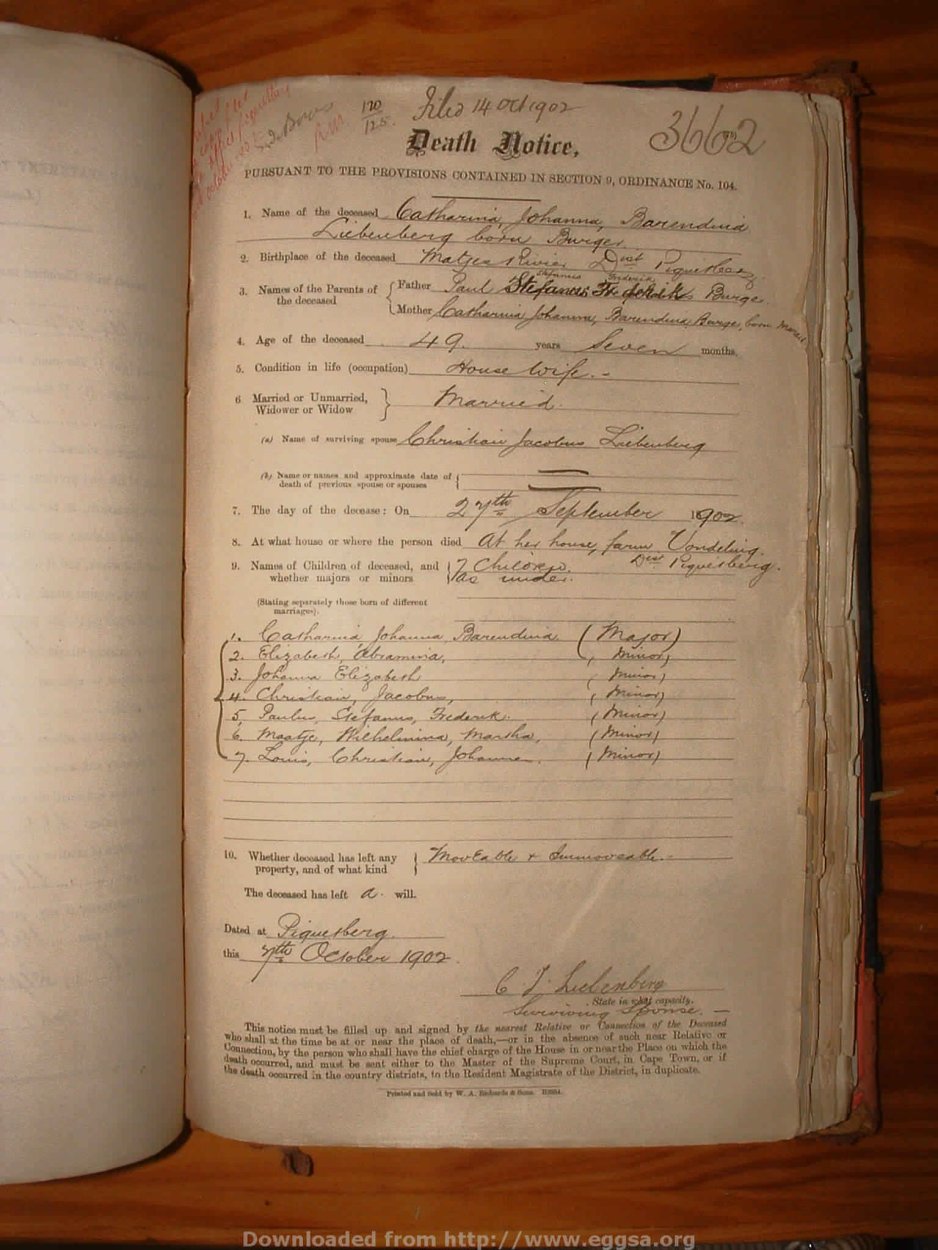 120
125
Filed 14 Oct 1902
3662
Death Notice,
PURSUANT TO THE PROVISIONS CONTAINED IN SECTION 9, ORDINANCE No. 104.
1. Name of the deceased Catharina, Johanna, Barendina
Liebenberg born Burger
2. Birthplace of the deceased Matjes Rivier Dist Piquetberg
Stefanus Frederik
3. Names of the Parents of the deceased { Father Paul Stefanus Frederik Burger
{ Mother Catharina Johanna, Barendina Burger, born
4. Age of the deceased 49 years Seven months.
5. Condition in life (occupation) House Wife. -
6 Married or Unmarried, Widower or Widow } Married.
(a) Name of surviving spouse Christiaan Jacobus Liebenberg
(b) Name or names and approximate date of death of previous spouse or spouses {
7. The day of the decease: On 27th September 1902
8. At what house or where the person died At her house, farm Vondeling.
Dist Piquetberg.
9. Names of Children of deceased, and whether majors or minors { 7 Children,
as under.
(Stating separately those born of different marriages).
1. Catharina Johanna Barendina (Major)
2. Elizabeth, Abramina, (Minor)
3. Johanna Elizabeth (Minor)
4. Christiaan, Jacobus, (Minor)
5, Paulus, Stefanus, Frederik. (Minor)
6. Maatje, Wilhelmina, Martha, (Minor)
7. Louis, Christiaan, Johannes. (Minor)
10. Whether deceased has left any property, and of what kind { Moveable & Immoveable. -
The deceased has left a. will.
Dated at Piquetberg
this 7th October 1902
C J Liebenberg
State in what capacity.
Surviving Spouse. -
This notice must be filled up and signed by the nearest Relative or Connection of the Deceased
who shall at the time be at or near the place of death,—or in the absence of such near Relative or
Connection, by the person who shall have the chief charge of the House in or near the Place on which the
death occurred, and must be sent either to the Master of the Supreme Court, in Cape Town, or if
the death occurred in the country districts, to the Resident Magistrate of the District, in duplicate.
Printed and Sold by W. A. Richards & Sons.
Downloaded from http://www.eggsa.org